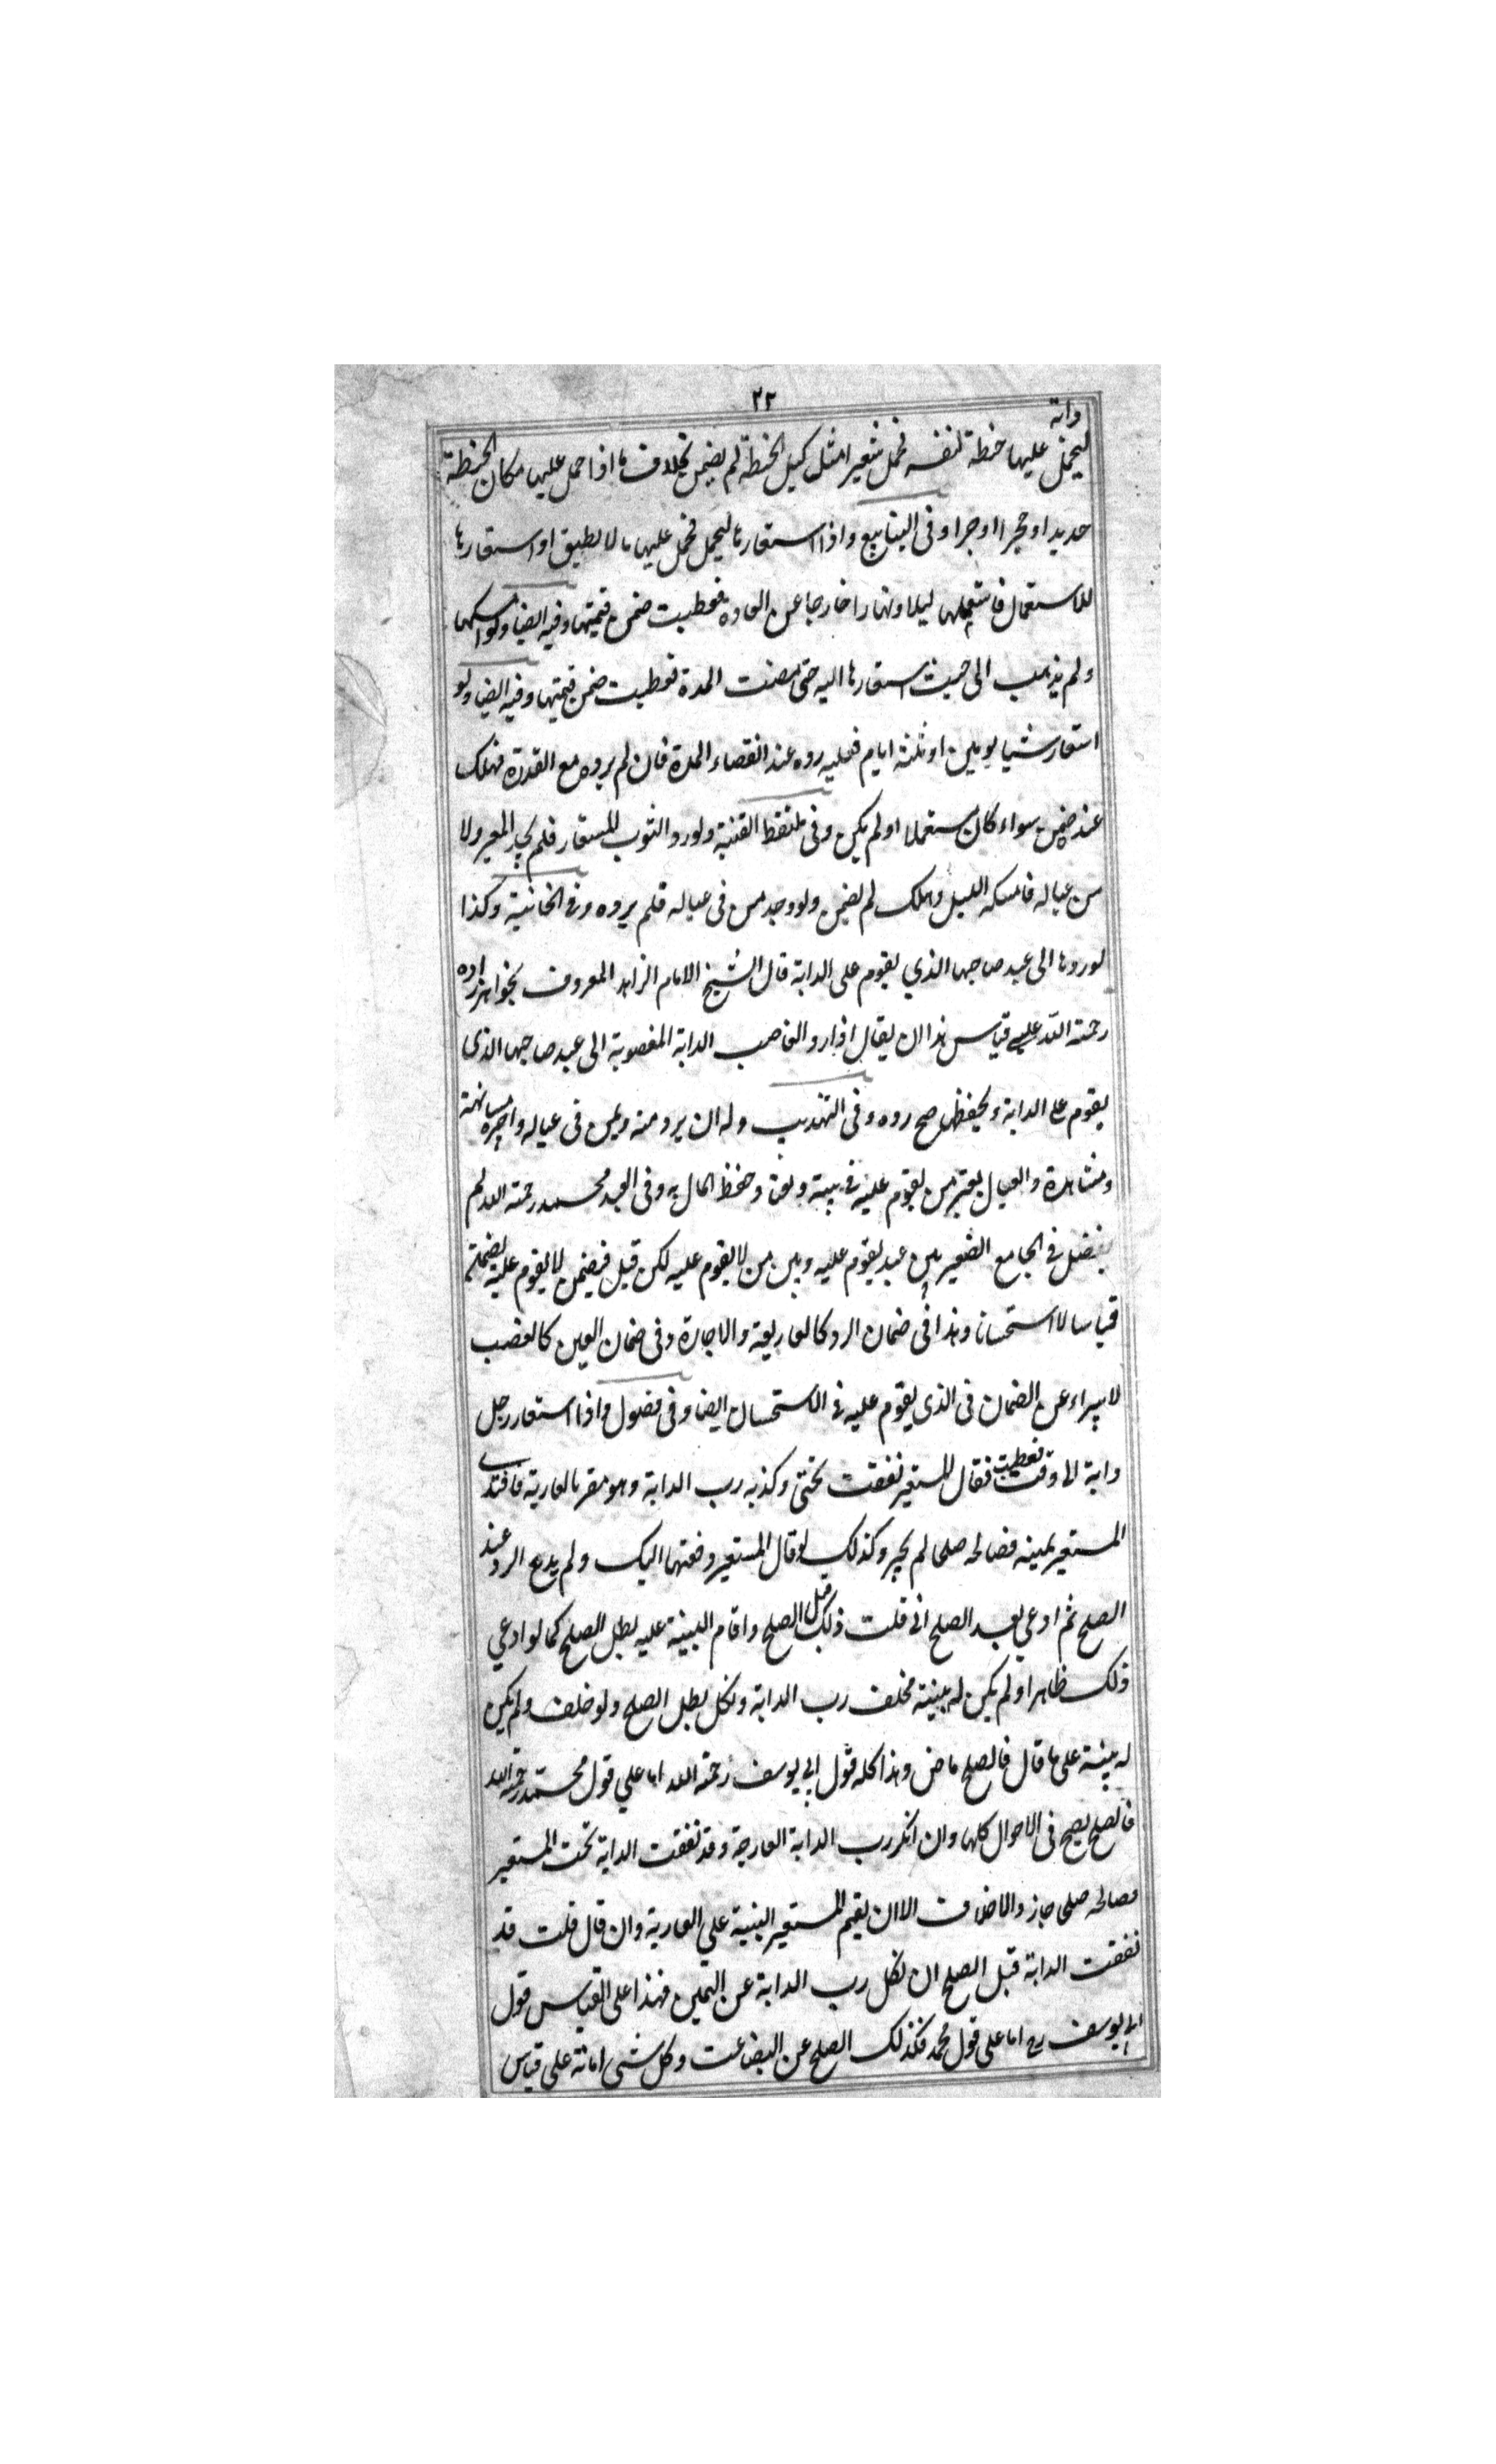 ٢٢
دابة
ليحمل عليها حنطة لنفسه فحمل شعيرا مثل كيل الحنطة لم يضمن بخلاف ما اذا حمل عليها مكان الحنطة
حديدا او حجرا او جرا وفى الينابيع واذا استعارها ليحمل فحمل عليها ما لا يطيق او استعارها
للاستعمال فاستعملها ليلا ونهارا خارجا عن العادة فعطبت ضمن قيمتها وفيه ايضا ولو امسكها
ولم يذهب الى حيث استعارها اليه حتى مضت المدة فعطبت ضمن قيمتها وفيه ايضا ولو
استعار شيا يومين او ثلثة ايام فعليه رده عند انقضاء المدة فان لم يرده مع القدرة فهلك
عنده ضمن سواء كان مستعملا او لم يكن وفى ملتقط القنية ولو رد الثوب المستعار فلم يجد المعير ولا
من عياله فامسكه الليل وهلك لم يضمن ولو وجد من فى عياله فلم يرده وفى الخانية وكذا
لو ردها الى عبد صاحبها الذي يقوم على الدابة قال الشيخ الامام الزاهد المعروف بخواهرزاده
رحمة الله عليه قياس هذا ان يقال اذا رد الغاصب الدابة المغصوبة الى عبد صاحبها الذى
يقوم على الدابة ويحفظها صح رده وفى التهذيب وله ان يرد منه وبمن فى عياله واجيره مسانهة
ومشاهرة والعيال يعتبر من يقوم عليه فى بيته ونفقة وحفظ المال به وفى العبد محمد رحمة الله لم
يفصل فى الجامع الصغير بين عبد يقوم عليه وبين من لا يقوم عليه لكن قيل فيضمن لا يقوم عليه يضمنه
قياسا لا استحسانا وهذا فى ضمان الرد كالعارية والاجارة وفى ضمان العين كالغصب
لا يبراء عن الضمان فى الذى يقوم عليه فى الاستحسان ايضا وفى فصول واذا استعار رجل
دابة الى وقت فعطبت فقال المستعير نفقت تحتى وكذبه رب الدابة وهو مقر بالعارية فافتدى
المستعير يمينه فصالحه صلحا لم يجز وكذلك لو قال المستعير دفعتها اليك ولم يدع الرد عند
الصلح ثم ادعي بعد الصلح انى قلت ذلك قبل الصلح واقام البينة عليه بطل الصلح كما لو ادعي
ذلك ظاهرا ولم يكن له بينة فحلف رب الدابة ونكل بطل الصلح ولو حلف ولم يكن
له بينة على ما قال فالصلح ماض وهذا كله قول ابي يوسف رحمة الله اما علي قول محمد رحمة الله
فالصلح يصح فى الاحوال كلها وان انكر رب الدابة العارية وقد نفقت الدابة تحت المستعير
فصالحه صلحا جاز والاخلاف الا ان يقيم المستعير البينة علي العارية وان قال قلت قد
نفقت الدابة قبل الصلح ان نكل رب الدابة عن اليمين فهذا على القياس قول
ابي يوسف رح اما على قول محمد فكذلك الصلح عن البضاعت وكل شى امانة على قياس